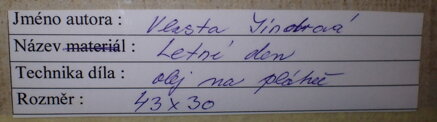 Jméno autora : Vlasta Jindrová
Název materiál : Letní den
Technika díla : olej na plátně
Rozměr : 43 x 30